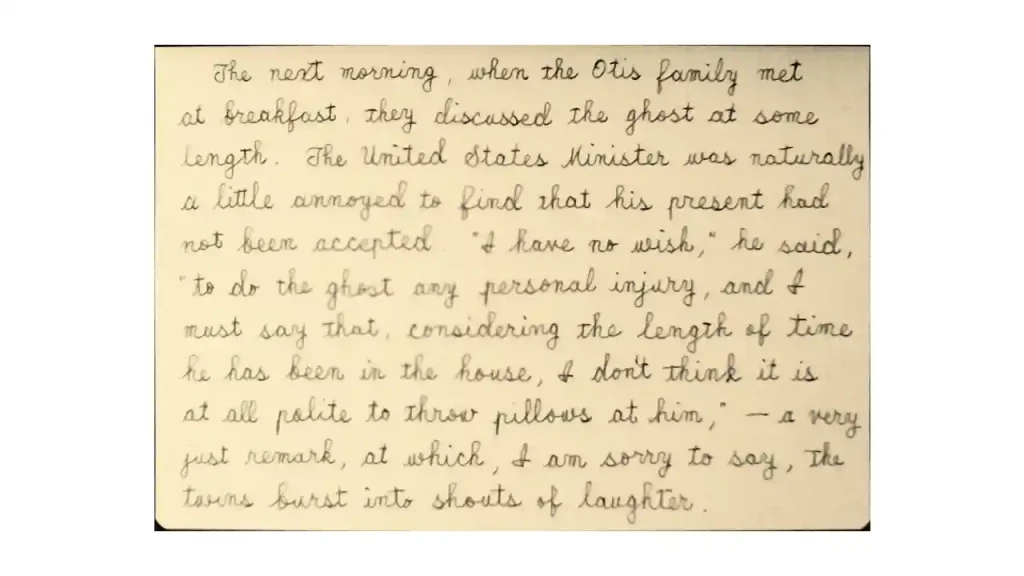 The next morning, when the Otis family met
at breakfast, they discussed the ghost at some
length. The United States Minister was naturally
a little annoyed to find that his present had
not been accepted "I have no wish," he said,
"to do the ghost any personal injury, and I
must say that, considering the length of time
he has been in the house, I don't think it is
at all polite to throw pillows at him," — a very
just remark, at which, I am sorry to say, the
twins burst into shouts of laughter.